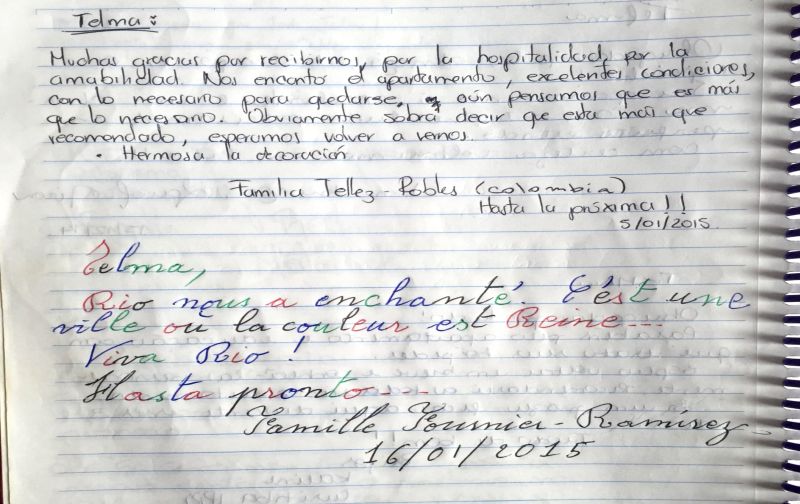 Telma:
Muchas gracias por recibirnos, por la hospitalidad, por la
amabilidad. Nos encanto el apartamento, excelentes condiciones,
con lo necesario para quedarse, aún pensamos que es más
que lo necesario. Obviamente sobra decir que esta más que
recomendado, esperamos volver a vernos.
• Hermosa la decoración
Familia Tellez - Robles (Colombia)
Hasta la próxima!!
5/01/2015
Telma,
Rio nous a enchanté. C'ést une
ville où la couleur est Reine...
Viva Rio !
Hasta pronto...
Famille Fournier - Ramírez
16/01/2015